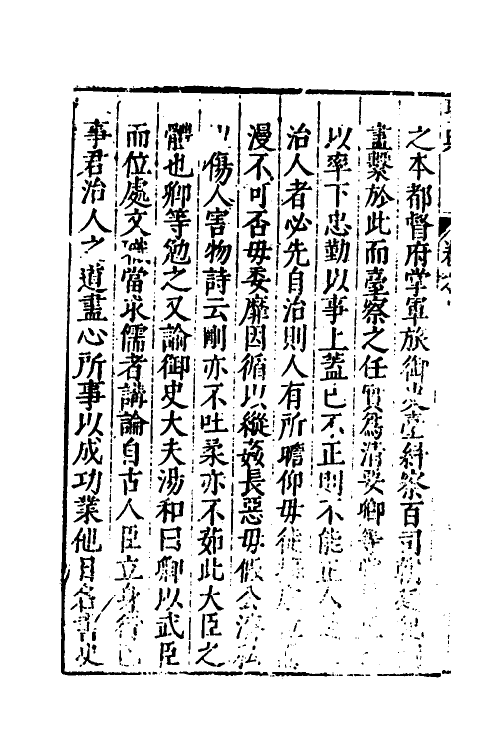 之本都督府掌軍旅御史臺糾察百司朝廷紀
盡繫於此而臺察之任實為清要卿等當
以率下忠勤以事上蓋己不正則不能正人
治人者必先自治則人有所瞻仰毋徒
漫不可否毋委靡因循以縱姦長惡毋假公濟私
以傷人害物詩云剛亦不吐柔亦不茹此大臣之
體也卿等勉之又諭御史大夫湯和曰卿以武臣
而位處文職當求儒者講論自古人臣立身行己
事君治人之道盡心所事以成功業他日名書史